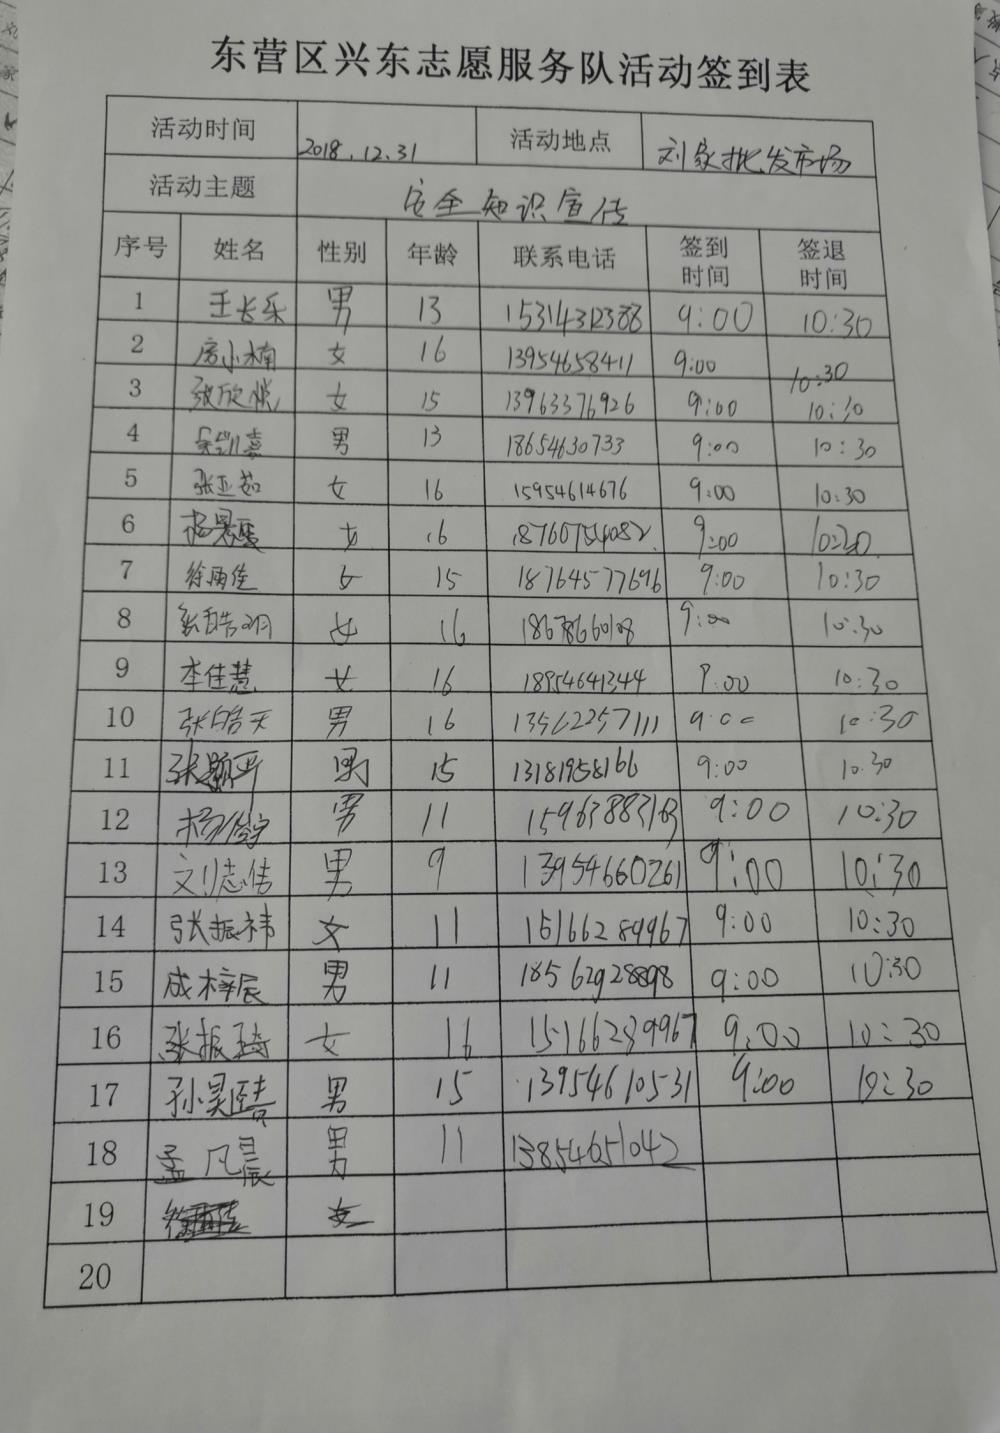 东营区兴东志愿服务队活动签到表
活动时间 2018.12.31 活动地点 刘家批发市场
活动主题 安全知识宣传
序号 姓名 性别 年龄 联系电话 签到时间 签退时间
1 王长乐 男 13 15314312388 9:00 10:30
2 房小楠 女 16 13954658411 9:00 10:30
3 张欣悦 女 15 13963376926 9:00 10:30
4 男 13 18654630733 9:00 10:30
5 张亚茹 女 16 15954614676 9:00 10:30
6 女 16 18760754082 9:00
7 徐雨佳 女 15 18764577696 9:00 10:30
8 女 16 18678660108 9:00 10:30
9 李佳慧 女 16 18954641344 9:00 10:30
10 张皓天 男 16 13562257111 9:00 10:30
11 男 15 13181958166 9:00 10:30
12 男 11 15963883163 9:00 10:30
13 刘志信 男 9 13954660261 9:00 10:30
14 张振祎 女 11 15166289967 9:00 10:30
15 成梓辰 男 11 18562928898 9:00 10:30
16 张振琦 女 16 15166289967 9:00 10:30
17 孙昊 男 15 13954610531 9:00 10:30
18 孟凡晨 男 11 13854651042
19 女
20